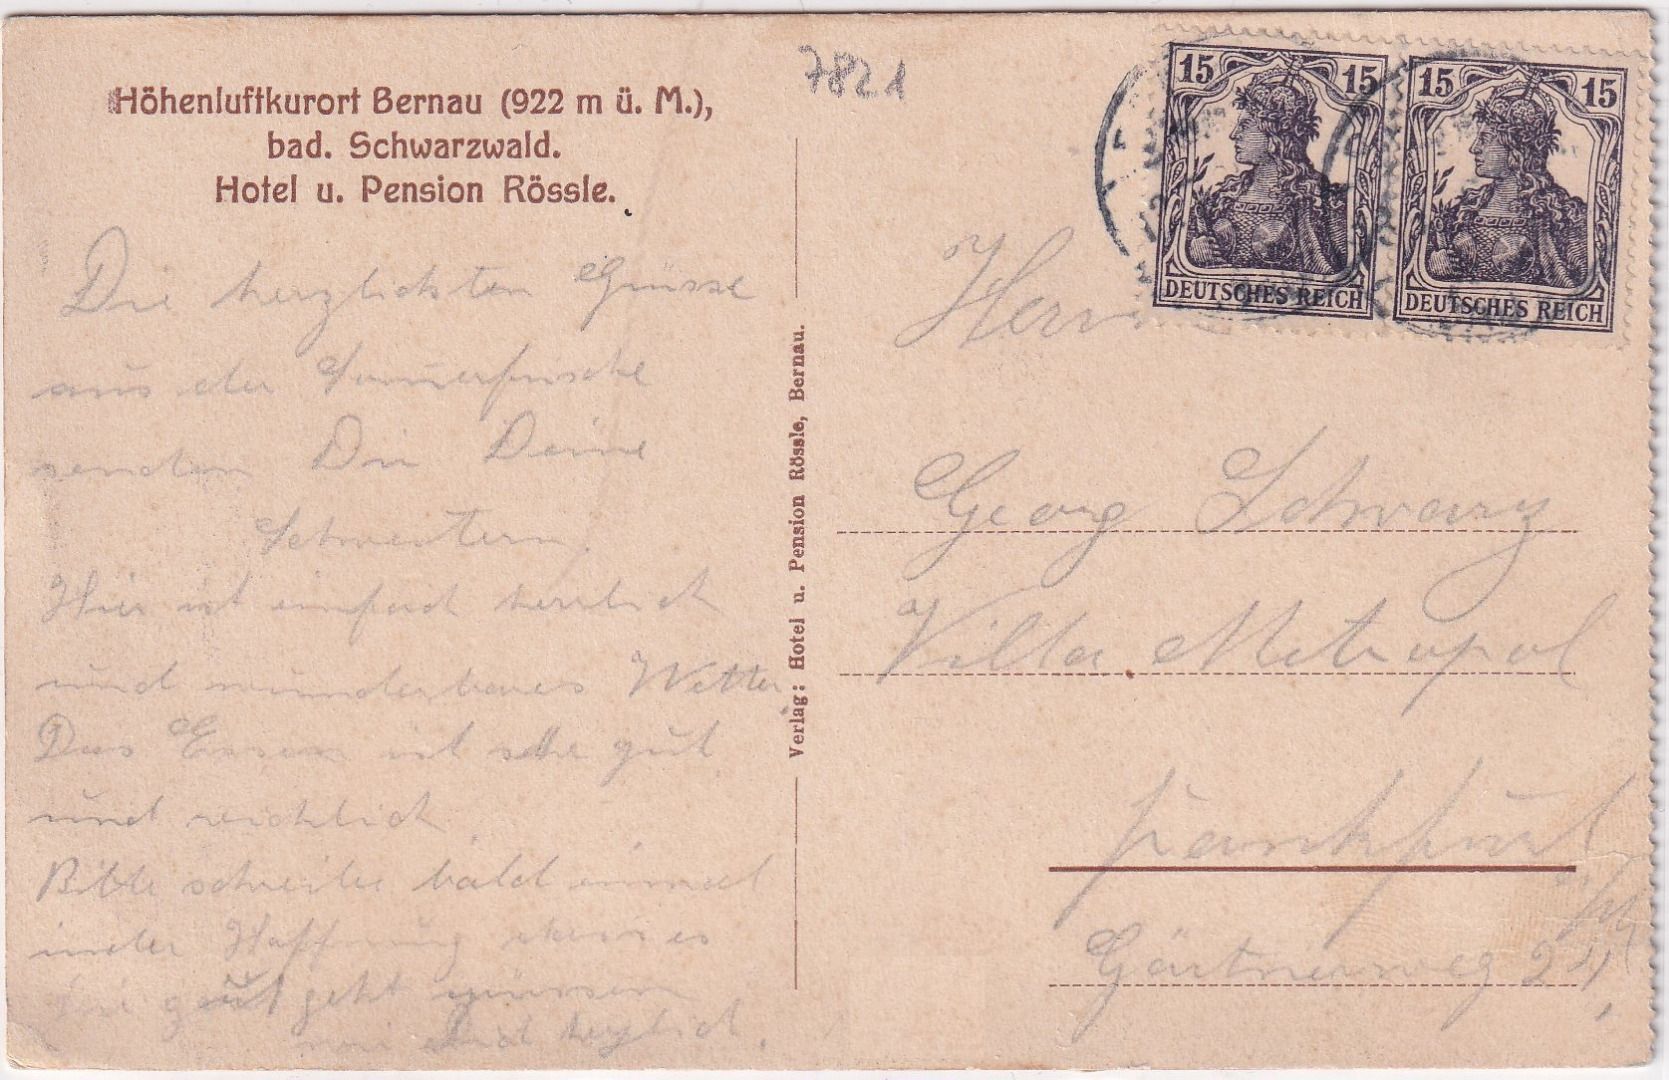 Höhenluftkurort Bernau (922 m ü. M.),
bad. Schwarzwald.
Hotel u. Pension Rössle.
Die herzlichsten Grüsse
aus der Sommerfrische
senden Dir Deine
Schwestern.
Hier ist einfach herrlich
und wunderbares Wetter.
Das Essen ist sehr gut
und reichlich.
Bitte schreibe bald einmal
in der Hoffnung es
Dir gut geht grüssen
wir Dich herzlich.
Verlag: Hotel u. Pension Rössle, Bernau.
7821
15 15
DEUTSCHES REICH
15 15
DEUTSCHES REICH
Herrn
Georg Schwarz
Villa Metropol
Frankfurt
a/M
Gärtnerweg